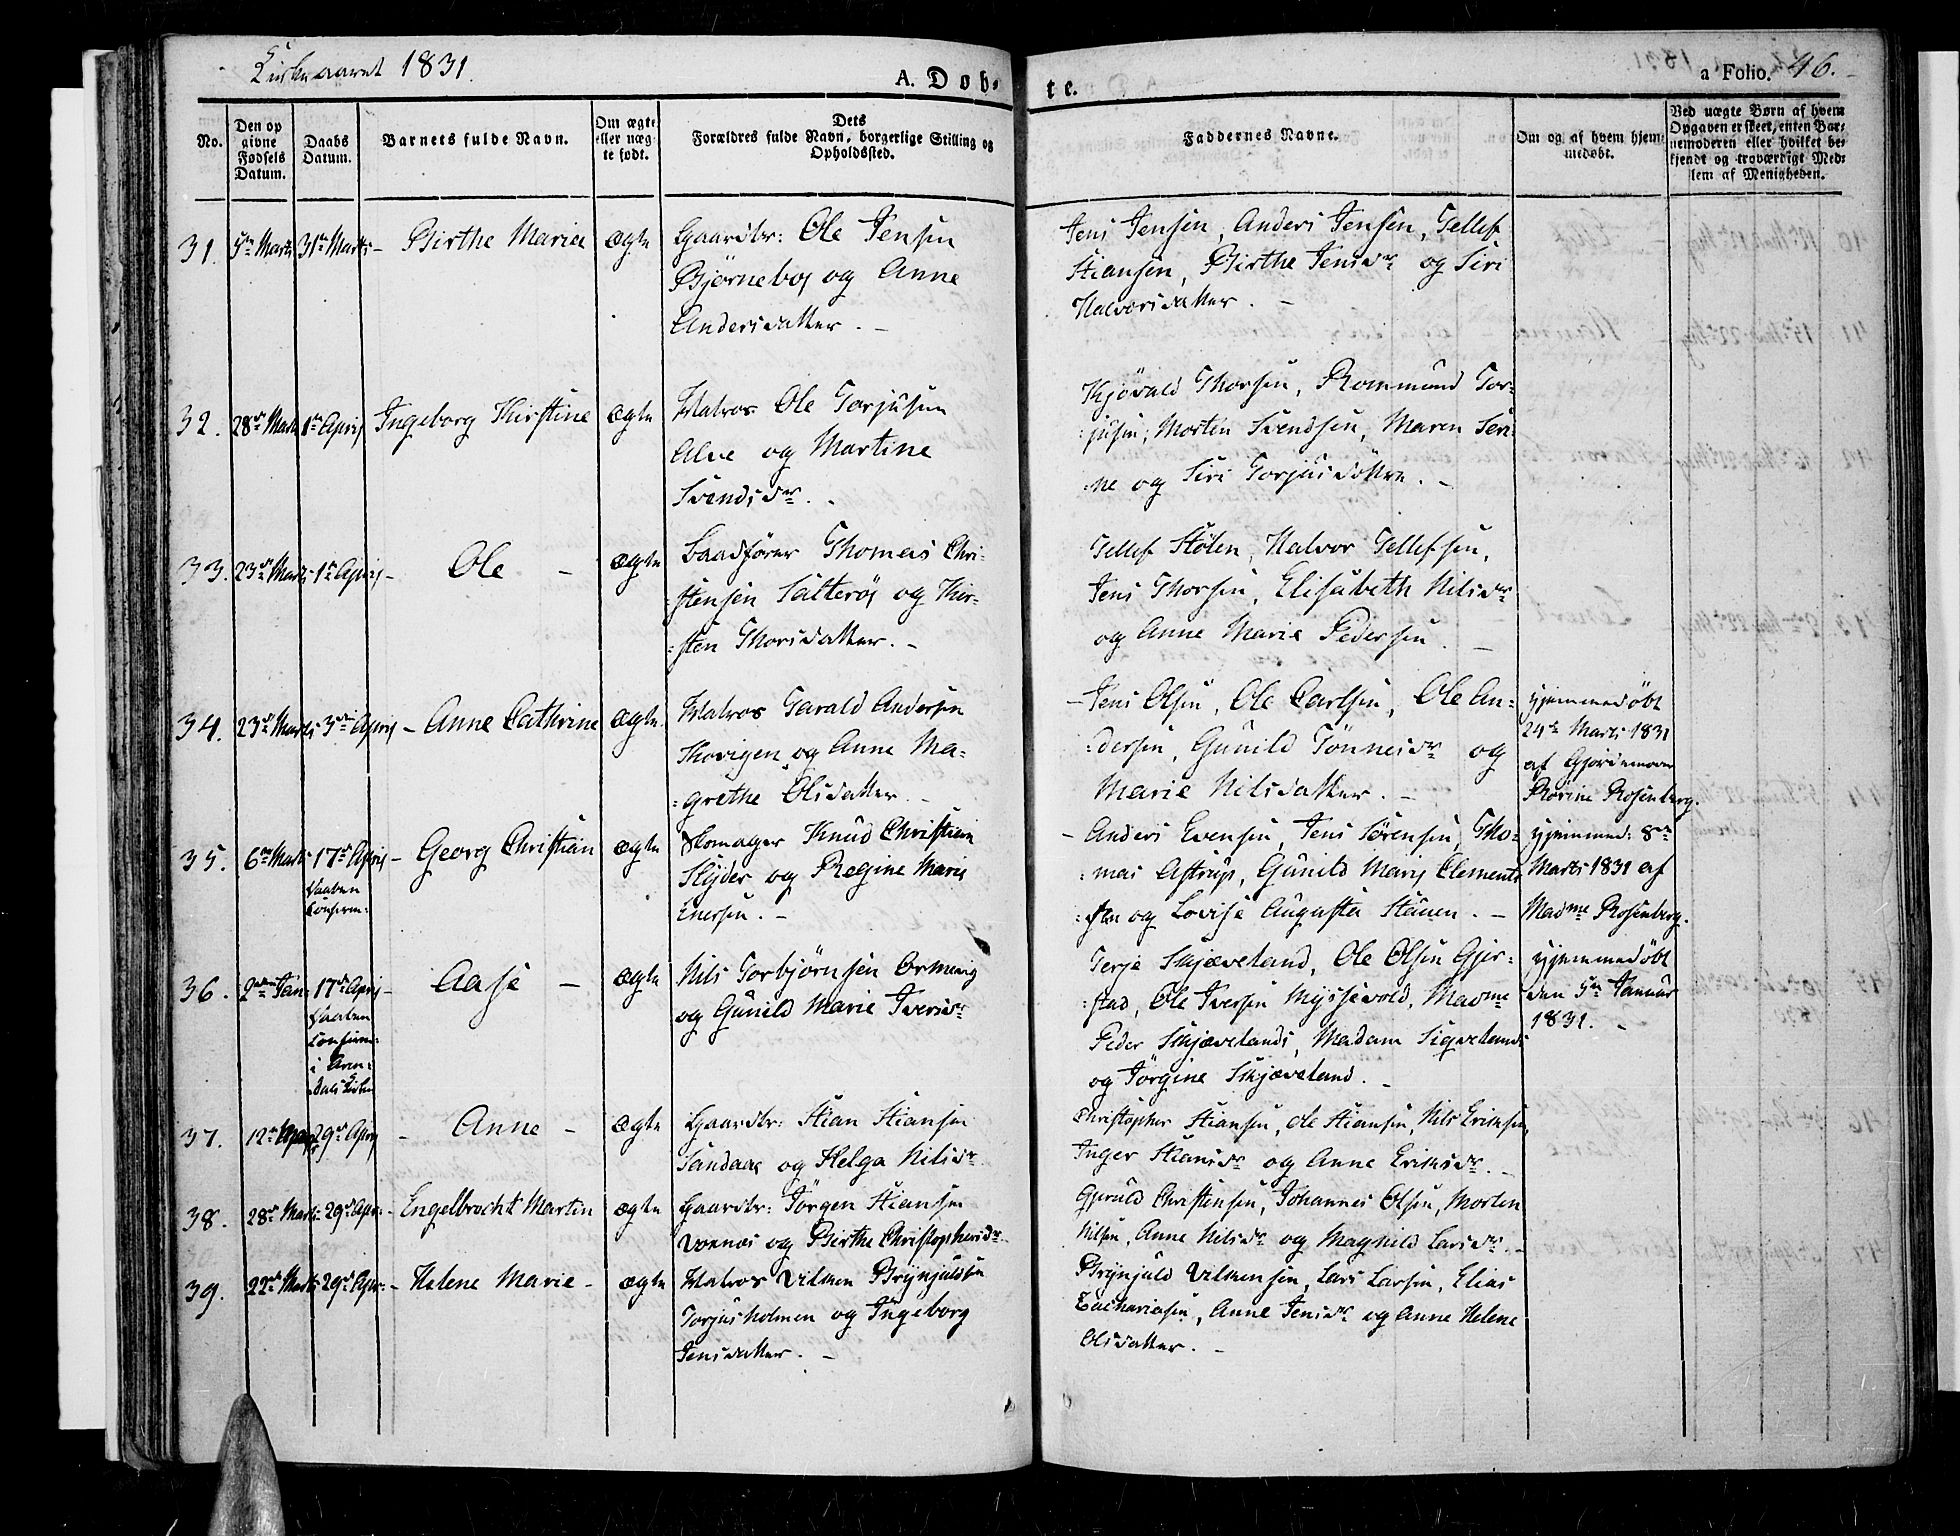 Kirkeaaret 1831.
A. Døb-
te.
a Folio. 46.
No.
Den op
givne
Fødsels
Datum.
Daabs
Datum.
Barnets fulde Navn.
Om ægte
eller uæg-
te født.
Dets
Forældres fulde Navn, borgerlige Stilling og
Opholdssted.
Faddernes Navne.
Om og af hvem hjem-
medøbt.
Ved uægte Børn af hvem
Opgaven er skeet, enten Bar-
nemoderen eller hvilket be-
kjendt og troværdigt Med-
lem af Menigheden.
31. 5te Marts 31te Marts - Birthe Maria ægte
Gaardbr: Ole Jensen
Bjørnebo og Anne
Andersdatter. -
Jens Jensen, Anders Jensen, Tellef
Stiansen, Birthe Jensdr og Siri
Halvorsdatter. -
32. 28de Marts 1te April Ingeborg Kirstine ægte
Matros Ole Torjusen
Alve og Martine
Svendsdr. -
Kjøvald Thorsen, Rommund Tor-
jusen, Morten Svendsen, Maren Seri-
ne og Siri Torjusdøttre. -
33. 23de Marts 1te April - Ole - ægte
Baadfører Thomas Chri-
stensen Salterø og Kir-
sten Thorsdatter. -
Tellef Stølen, Halvor Tellefsen,
Jens Thorsen, Elisabeth Nilsdr
og Anne Marie Pedersen. -
34. 23de Marts 3die April - Anne Cathrine ægte.
Matros Tarald Andersen
og Anne Ma-
grethe Olsdatter. -
- Jens Olsen, Ole Carlsen, Ole An-
dersen, Gunild Tønnesdr og
Marie Nilsdatter. -
hjemmedøbt
24de Marts 1831
af Gjordemoder
Rosenberg.
35. 6te Marts 17de April - Georg Christian ægte
Daaben
Confirm:
Skomager Knud Christian
Slyder og Regine Marie
Enersen. -
- Anders Evensen, Jens Sørensen, Tho-
mas Astrup, Gunild Marie Clement-
sen og Lovise Augusta Steuen. -
hjemmed: 8de
Marts 1831 af
Madme Rosenberg.
36. 2den Jan: 17de April - Aase - ægte
Daaben
Confirm:
i Aren-
dals Kirke
Nils Torbjørnsen Ormevig
og Gunild Marie Iversdr
Terje Skjæveland, Ole Olsen Gjer-
stad, Ole Iversen Myssevold, Madme
Peder Skjævelands, Madam Siqvelands
og Jørgine Skjæveland. -
hjemmedøbt
den 5te Januar
1831. -
37. 12te 29de April - Anne - ægte
Gaardbr: Stian Stiansen
Sandaae og Helga Nilsdr
Christopher Stiansen, Ole Stiansen, Nils Eriksen,
Inger Stiansdr og Anne Eriksdr. -
38. 28de Marts 29de Apr: - Engelbrecht Martin ægte
Gaardbr: Jørgen Stiansen
Vrenæs og Birthe Christophersdr -
Gjeruld Christensen, Johannes Olsen, Morten
Nilsen, Anne Nilsdr og Magnild Larsdr. -
39. 22de Marts 29de Apr: - Helene Marie - ægte
Matros Vilken Brynjuldsen
Torjusholmen og Ingeborg
Jensdatter. -
Brynjuld Vilkensen, Lars Larsen, Elias
Zachariasen, Anne Jensdr og Anne Helene
Olsdatter. -